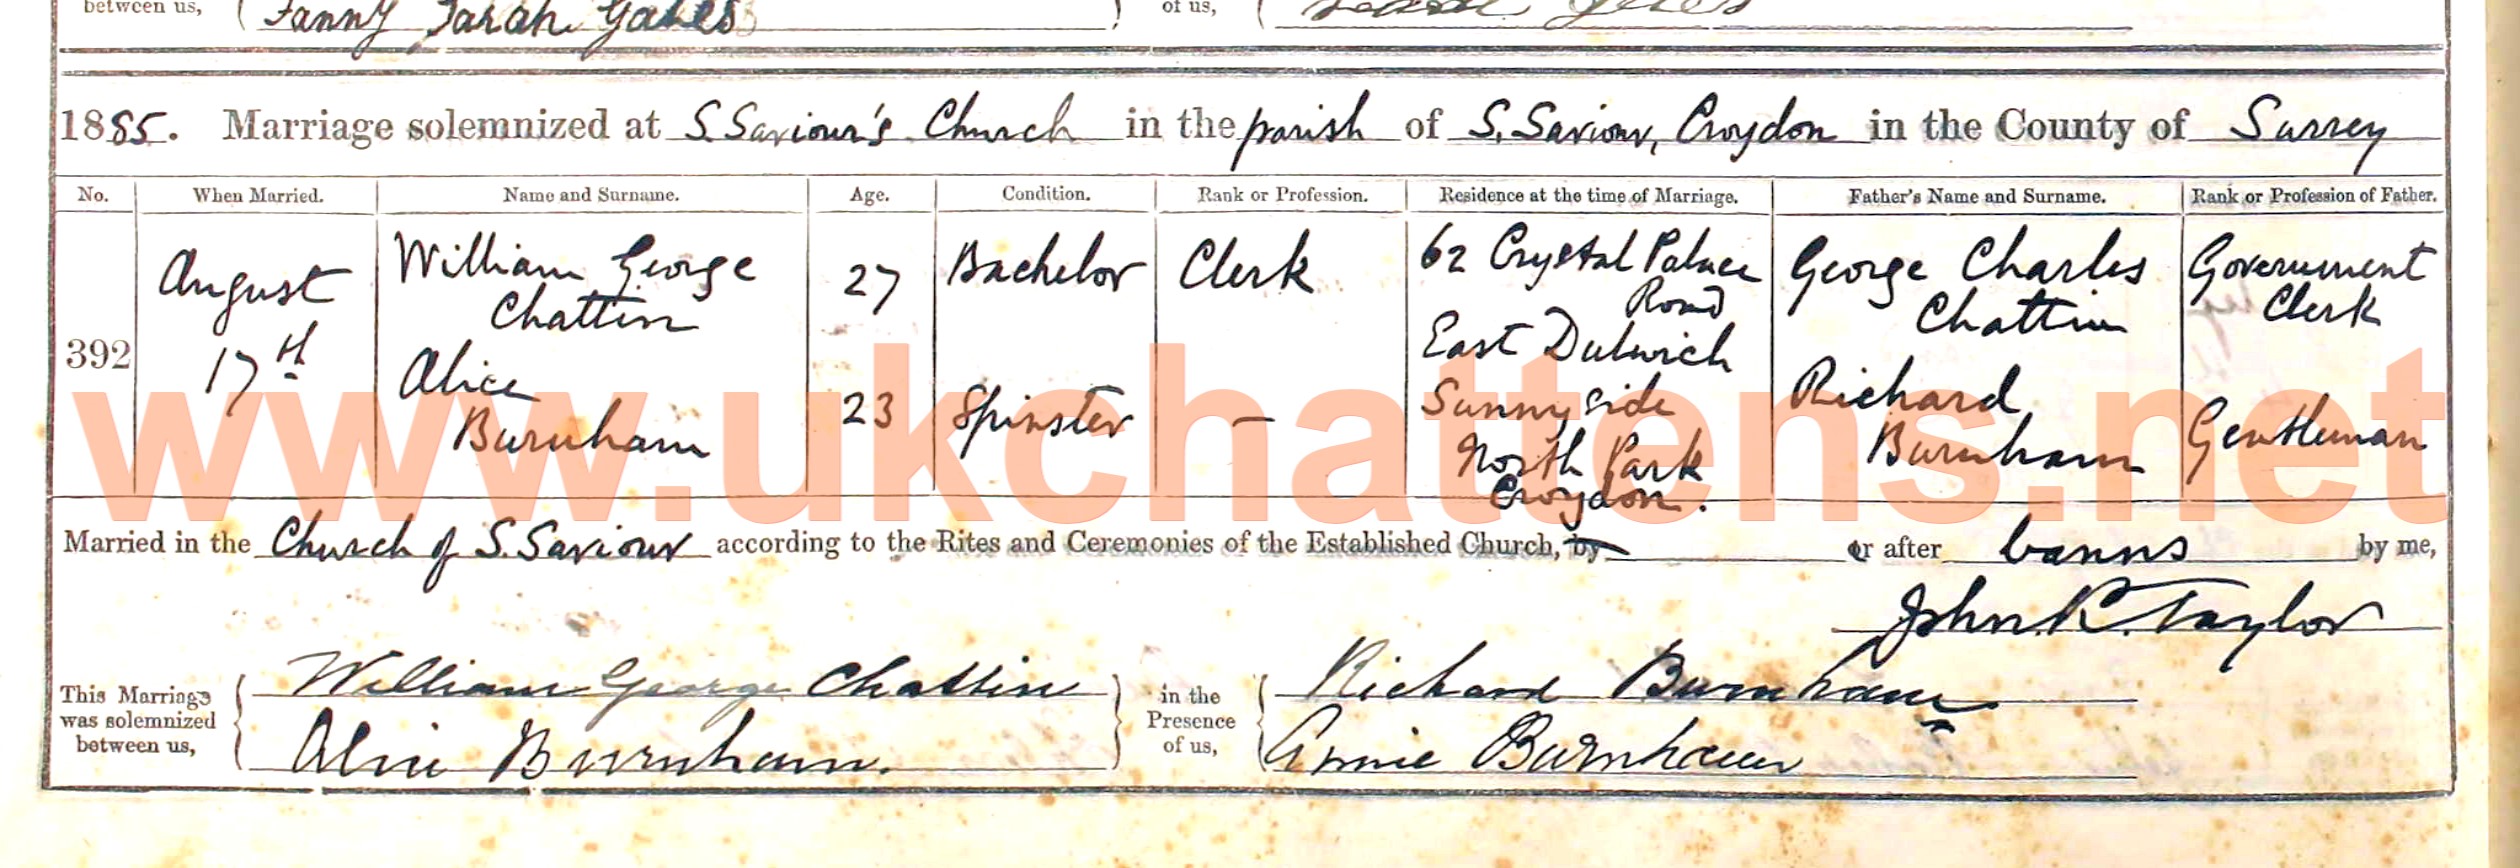 between us, ( Fanny Sarah Yates ) of us, (
1885. Marriage solemnized at S. Saviour's Church in the parish of S. Saviour, Croydon in the County of Surrey
No. When Married. Name and Surname. Age. Condition. Rank or Profession. Residence at the time of Marriage. Father's Name and Surname. Rank or Profession of Father.
392 August 17th William George Chattin 27 Bachelor Clerk 62 Crystal Palace Road East Dulwich George Charles Chattin Government Clerk
Alice Burnham 23 Spinster – Sunnyside North Park Croydon. Richard Burnham Gentleman
www.ukchattens.net
Married in the Church of S. Saviour according to the Rites and Ceremonies of the Established Church, by or after banns by me,
John R. Taylor
This Marriage was solemnized between us, { William George Chattin
Alice Burnham. } in the Presence of us, { Richard Burnham
Annie Burnham